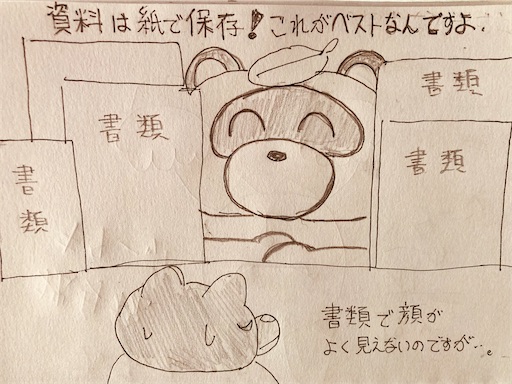 資料は紙で保存！これがベストなんですよ.
書類
書類
書類
書類
書類で顔が
よく見えないのですが…。